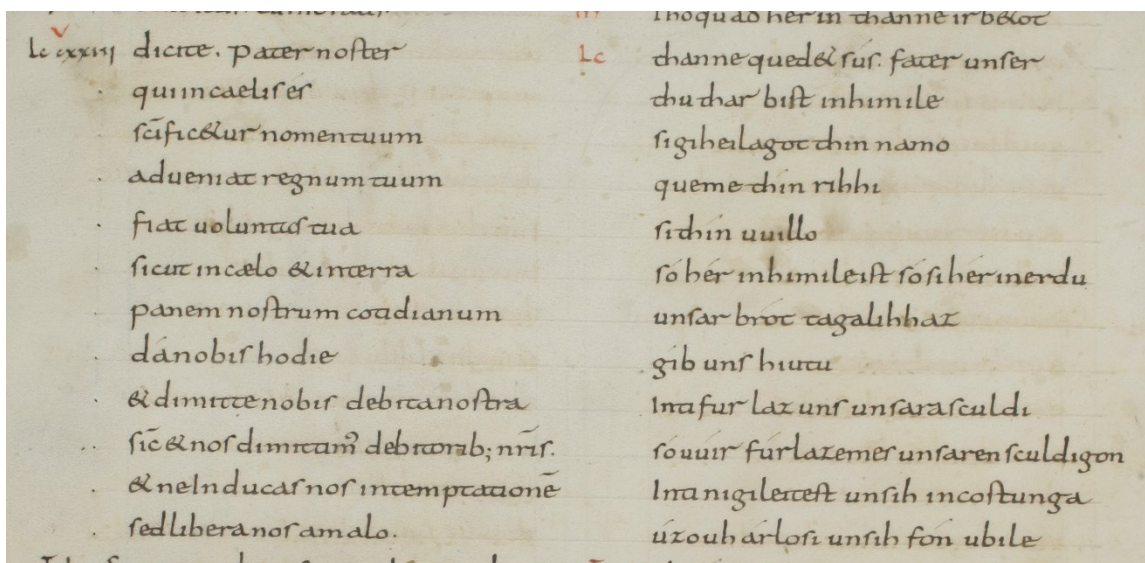 dicite. pater noster
qui in caelis es
scificetur nomen tuum
adueniat regnum tuum
fiat uoluntas tua
sicut in cælo & in terra
panem nostrum cotidianum
da nobis hodie
& dimitte nobis debita nostra
sic & nos dimittam debitorib; nr̄is.
& ne Inducas nos in temptationē
sed libera nos a malo.
Lc
thanne qued& sus. fater unser
thu thar bist in himile
si giheilagot thin namo
queme thin rihhi
si thin uuillo
só her in himile ist só si her in erdu
unsar brot tagalihhaz
gib uns hiutu
Inti furlaz uns unsara sculdi
so uuir furlazemes unsaren sculdigon
Inti ni gileitest unsih in costunga
úzouh árlosi unsih fon ubile